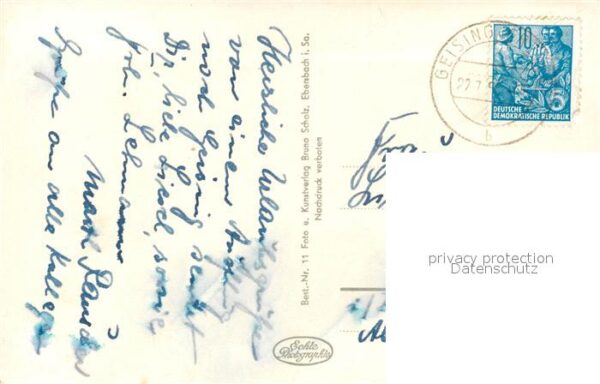 Herzliche Urlaubsgrüße
von einem Ausflug
nach Geising sendet
Dir, liebe Liesel, sowie
Joh. Lehmann
Grüße an alle Kollegen
Best.-Nr. 11 Foto u. Kunstverlag Bruno Scholz, Ebersbach i. Sa.
Nachdruck verboten
Echte
Photographie
GEISING
b
10
5
DEUTSCHE
DEMOKRATISCHE REPUBLIK
privacy protection
Datenschutz